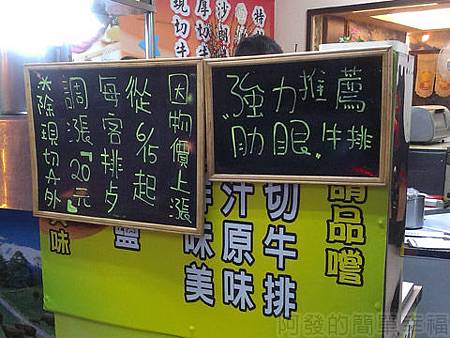 因物價上漲
從6/15起
每客排夕
調漲『20元』
米除現切夕外
"強力推薦
肋眼"牛排
請品嚐
切牛排
汁原味
味美
現切牛
厚切牛
阿發的簡單幸福